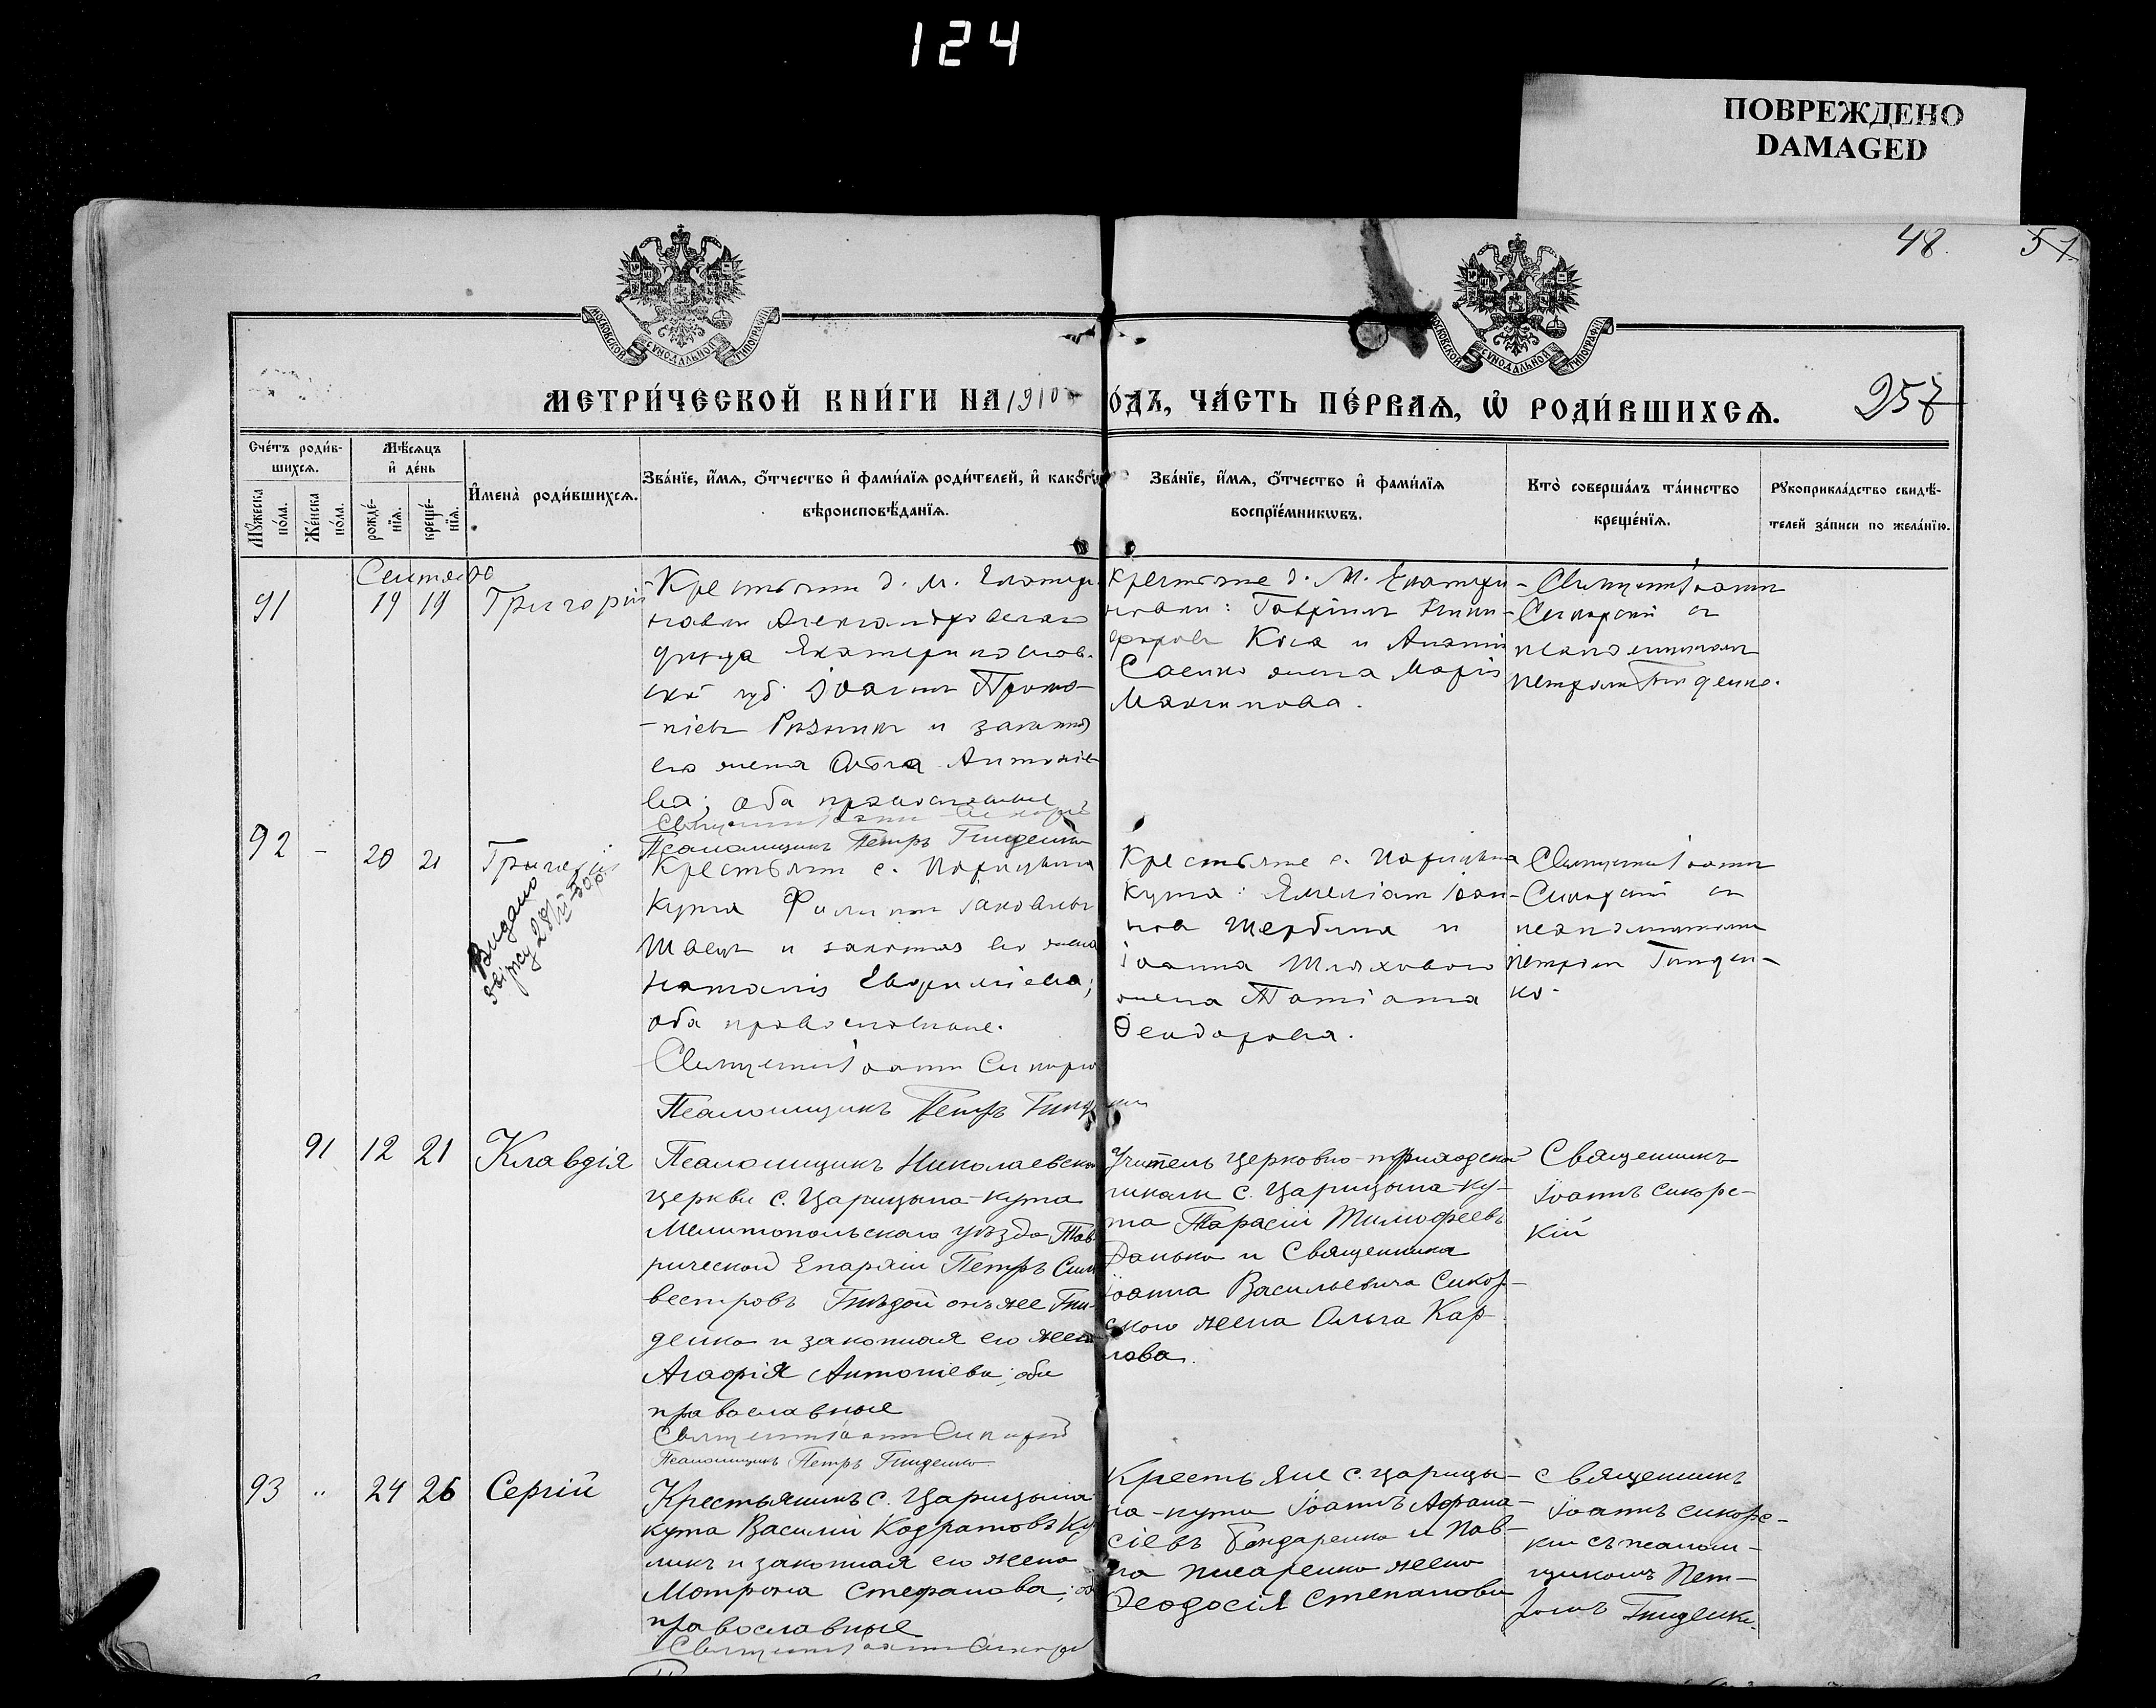 124
ПОВРЕЖДЕНО
DAMAGED
48.
57
МОСКОВСКОЙ СУНОДАЛЬНОЙ ТИПОГРАФІИ
МОСКОВСКОЙ СУНОДАЛЬНОЙ ТИПОГРАФІИ
МЕТРИ́ЧЕСКОЙ КНИ́ГИ НА 1910 О́ДЪ, ЧА́СТЬ ПЕ́РВАѦ, Ѽ РОДИ́ВШИХСѦ.
257
Сче́тъ роди́в-
шихсѧ.
Мѣ́сѧцъ
и҆ де́нь
Мꙋ́жеска
по́ла.
Же́нска
по́ла.
рожде́-
нїѧ.
креще́-
нїѧ.
И҆мена̀ роди́вшихсѧ.
Зва́нїе, и҆́мѧ, о҆́тчество и҆ фами́лїѧ роди́телей, и҆ како́гѡ
вѣроисповѣ́данїѧ.
Зва́нїе, и҆́мѧ, о҆́тчество и҆ фами́лїѧ
воспрїе́мникѡвъ.
Кто̀ соверша́лъ та́инство
креще́нїѧ.
Рꙋкоприкла́дство свидѣ́-
телей за́писи по жела́нїю.
91
19 19
Григорій
Александровскаго
уѣзда Екатеринослав-
ской губ. Іоаннъ Проко-
-піевъ и законная
его жена Антоніе-
ва; оба православные
Псаломщикъ Петръ Гниденко
Саенко жена Марія
Максимова.
Сикорскій съ
псаломщикомъ
Петромъ Гниденко.
92 - 20 21 Григорій
Видано
Крестьяне с. Царицына
Кута Филиппъ Іаковлевъ
Швецъ и законная его жена
Наталія Евфиміева;
оба православные.
Священникъ Іоаннъ Сикорс
Псаломщикъ Петръ Гниденко
Крестьяне с. Царицына
Кута: Емеліанъ Іоан-
новъ Щербина и
Іоанна Шляхового
жена Татіана
Ѳеодорова.
Священникъ Іоаннъ
Сикорскій съ
псаломщикомъ
Петромъ Гниден-
ко.
91 12 21 Клавдія
Псаломщикъ Николаевской
церкви с. Царицына-кута
Мелитопольскаго уѣзда Тав-
рической Епархіи Петръ Сил
вестровъ Гнѣдой онъ же Гни-
денко и законная его жена
Агафія Антоніева; оба
православные
Священникъ Іоаннъ Сикорскій
Псаломщикъ Петръ Гниденко
Учитель церковно-приходской
школы с. Царицына-Ку-
та Тарасій Тимофеевъ
Данько и Священника
Іоанна Васильевича Сикор-
скаго жена Ольга Кар-
пова.
Священникъ
Іоаннъ Сикорс-
кій
93 " 24 26 Сергій
Крестьянинъ с. Царицына
кута Василій Кодратовъ Ку
ликъ и законная его жена
Мотрона Стефанова; об
православные
Священникъ Іоаннъ Сикорскій
Крестьяне с. Царицы-
на-кута Іоаннъ Афана-
сіевъ Бондаренко и Пав-
ла Писаренко жена
Ѳеодосія Степанова
Священникъ
Іоаннъ Сикорс-
кій съ псалом-
щикомъ Пет-
ромъ Гниденко.